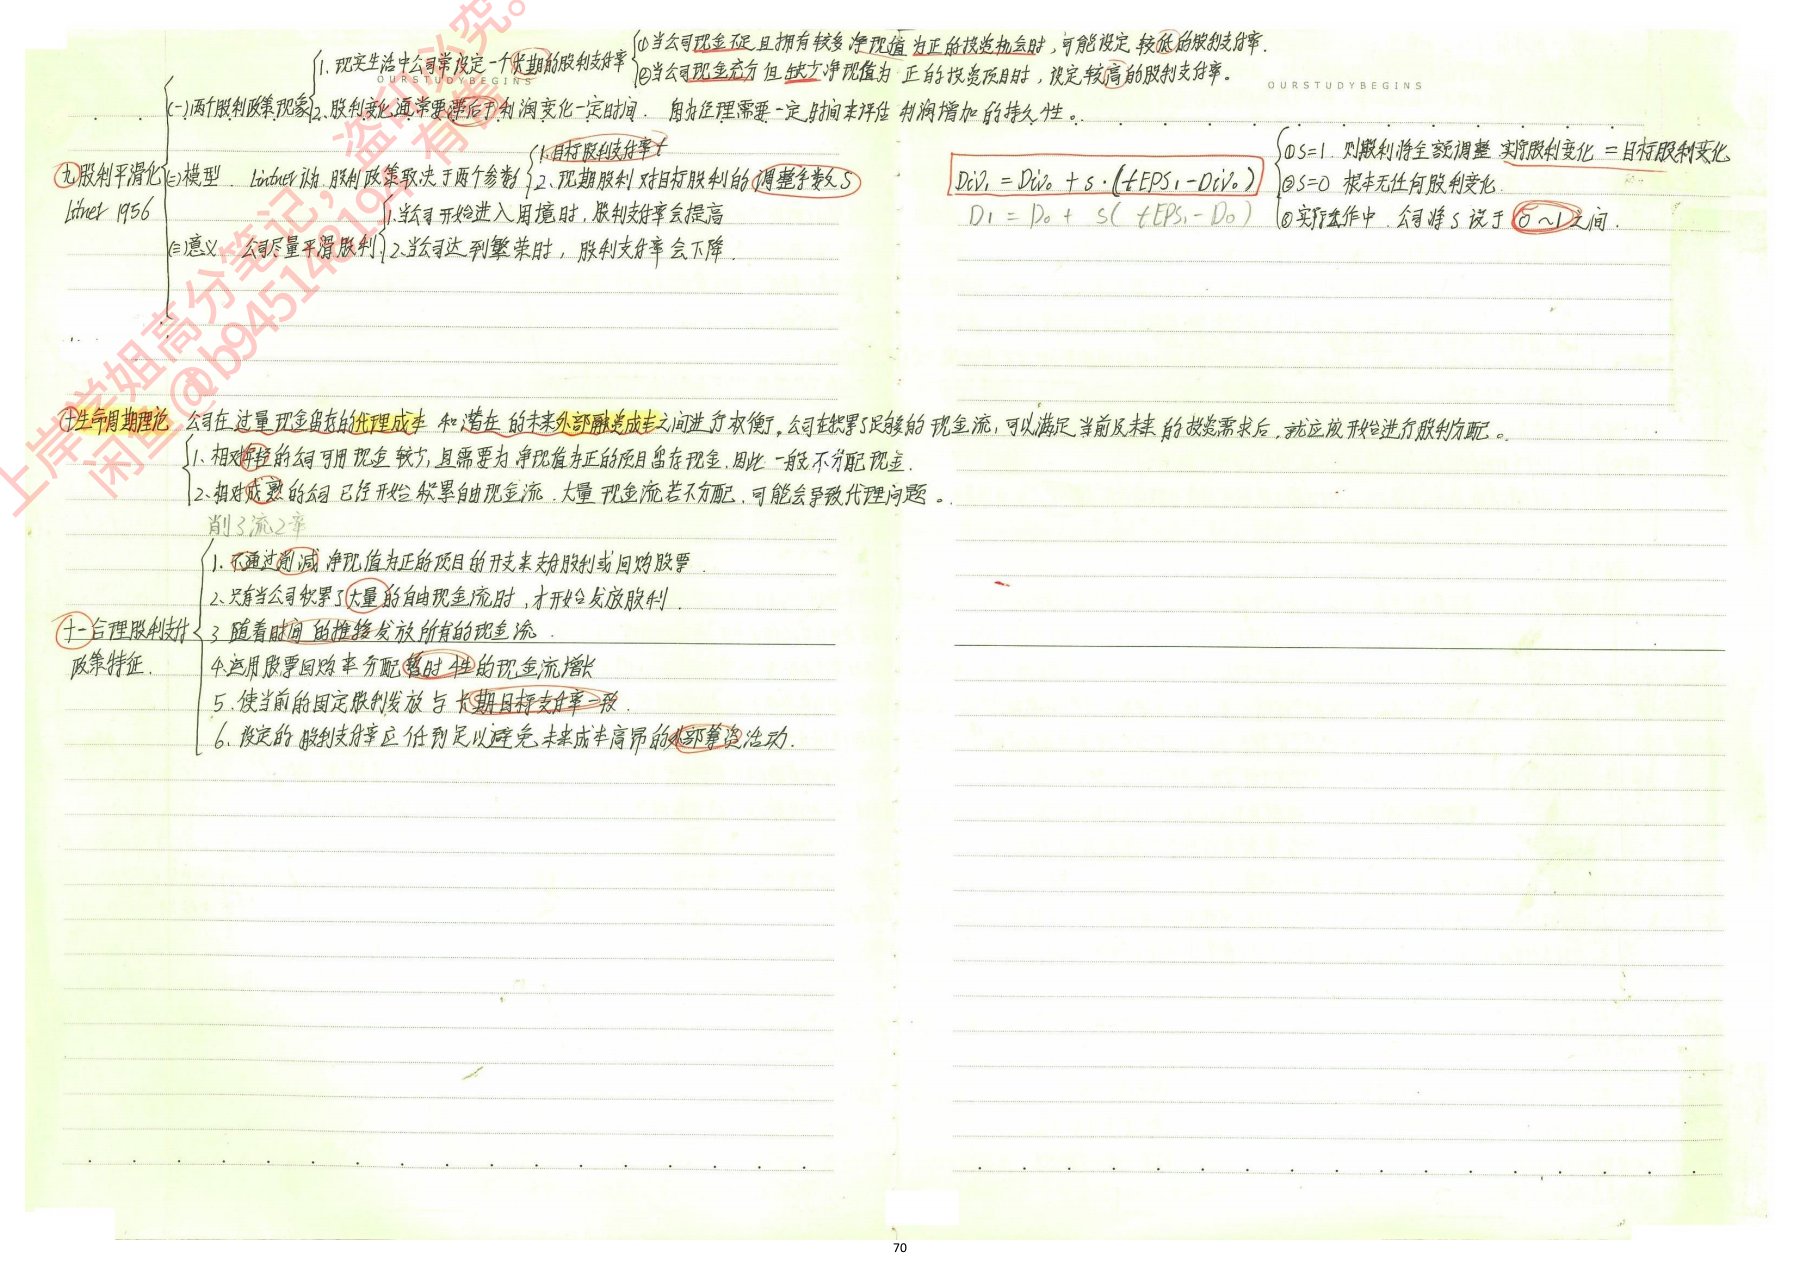 OURSTUDYBEGINS
OURSTUDYBEGINS
上岸学姐高分笔记,盗印必究。
闲鱼@b9451482194 有售
九 股利平滑化
Litner 1956
(一) 两个股利政策现象
1. 现实生活中公司常设定一个长期的股利支付率
① 当公司现金不足且拥有较多净现值为正的投资机会时,可能设定较低的股利支付率.
② 当公司现金充分但缺少净现值为正的投资项目时,设定较高的股利支付率。
2. 股利变化通常要滞后于利润变化一定时间. 因为经理需要一定时间来评估利润增加的持久性。
(二) 模型. Lintner认为,股利政策取决于两个参数
1. 目标股利支付率 t
2. 现期股利对目标股利的调整系数 S
Div₁ = Div₀ + s·(tEPS₁ - Div₀)
D1 = D₀ + s( tEPS₁ - D₀)
① S=1. 则股利将全额调整 实际股利变化 = 目标股利变化
② S=0 根本无任何股利变化.
③ 实际操作中. 公司将 S 设于 0~1 之间.
(三) 意义 公司尽量平滑股利
1. 当公司开始进入困境时,股利支付率会提高
2. 当公司达到繁荣时,股利支付率会下降.
十 生命周期理论 公司在过量现金留存的代理成本 和潜在的未来外部融资成本之间进行权衡,公司在积累了足够的现金流,可以满足当前及未来的投资需求后,就应该开始进行股利分配。
1. 相对年轻的公司可用现金较少,且需要为净现值为正的项目留存现金.因此一般不分配现金.
2. 相对成熟的公司已经开始积累自由现金流. 大量现金流若不分配,可能会导致代理问题。
削3流2率
十一 合理股利支付
政策特征.
1. 不通过削减净现值为正的项目的开支来支付股利或回购股票.
2. 只有当公司积累了大量的自由现金流时,才开始发放股利.
3 随着时间的推移发放所有的现金流.
4. 运用股票回购来分配暂时性的现金流增长
5. 使当前的固定股利发放与长期目标支付率一致.
6. 设定的股利支付率应低到足以避免未来成本高昂的外部筹资活动.
70